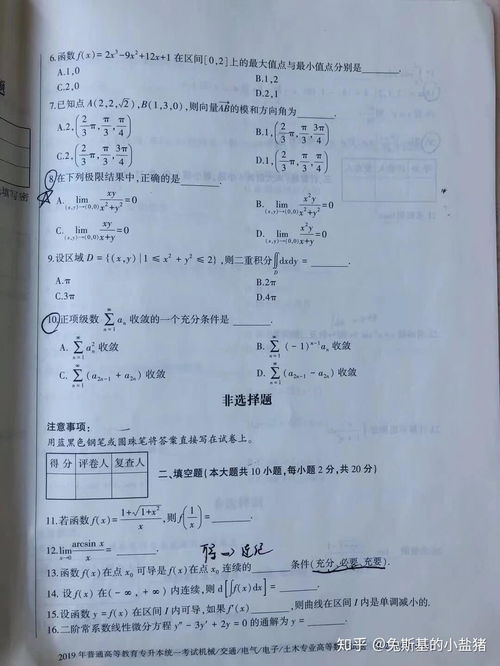 6.函数f(x)=2x³-9x²+12x+1在区间[0,2]上的最大值点与最小值点分别是______.
A.1,0 B.1,2
C.2,0 D.2,1
7.已知点A(2,2,√2),B(1,3,0),则向量AB的模和方向角为______.
A.2,(2/3π,π/3,π/4) B.1,(2/3π,π/3,3π/4)
C.2,(2/3π,π/3,3π/4) D.1,(2/3π,π/3,π/4)
8.在下列极限结果中,正确的是______.
A. lim(x,y)→(0,0) xy/(x²+y²)=0 B. lim(x,y)→(0,0) x²y/(x²+y²)=0
C. lim(x,y)→(0,0) xy/(x+y)=0 D. lim(x,y)→(0,0) x²y/(x+y)=0
9.设区域D={(x,y)|1≤x²+y²≤2},则二重积分∬D dxdy=______.
A.π B.2π
C.3π D.4π
10.正项级数∑n=1∞ aₙ收敛的一个充分条件是______.
A. ∑n=1∞ aₙ²收敛 B. ∑n=1∞ (-1)ⁿ⁻¹aₙ收敛
C. ∑n=1∞ (a₂ₙ₋₁+a₂ₙ)收敛 D. ∑n=1∞ (a₂ₙ₋₁-a₂ₙ)收敛
非选择题
注意事项:
用蓝黑色钢笔或圆珠笔将答案直接写在试卷上。
得分 评卷人 复查人
二、填空题(本大题共10小题,每小题2分,共20分)
11.若函数f(x)=(1+√(1+x²))/x,则f(1/x)=______.
12.lim x→0 arcsin x/x=______.
13.函数f(x)在点x₀可导是f(x)在点x₀连续的______条件(充分,必要,充要).
14.设f(x)在(-∞,+∞)内连续,则d[∫f(x)dx]=______.
15.设函数y=f(x)在区间I内可导,如果f′(x)______,则曲线在区间I内是单调减小的.
16.二阶常系数线性微分方程y″-3y′+2y=0的通解为y=______.
2019年普通高等教育专升本统一考试机械/交通/电气/电子/土木专业高等数
知乎 @兔斯基的小盐猪